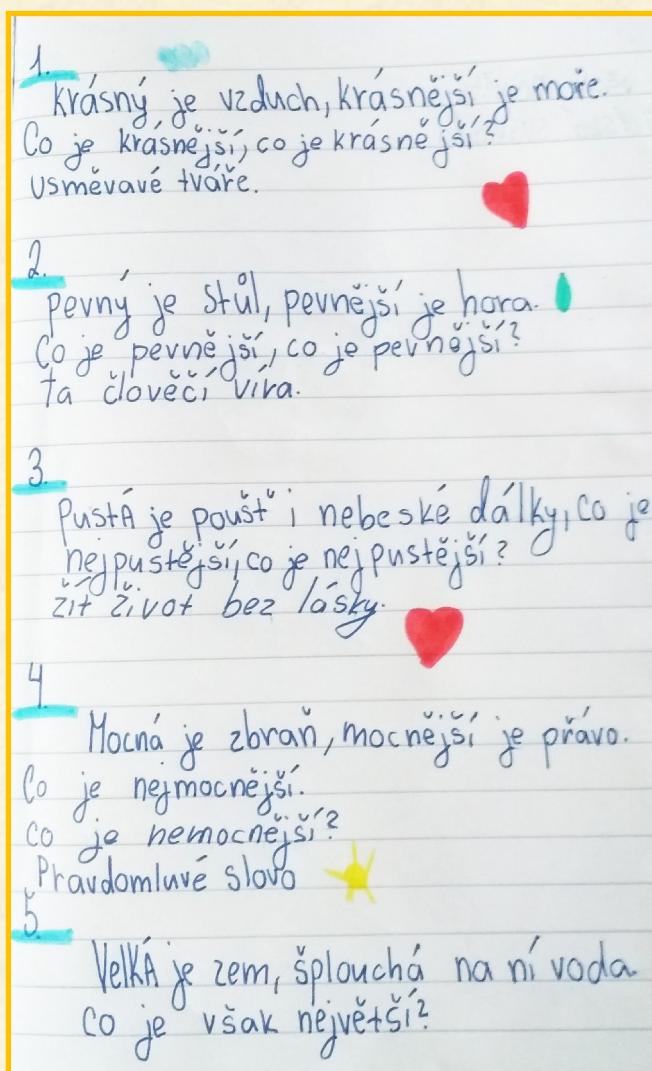 1.
krásný je vzduch, krásnější je moře.
Co je krásnější, co je krásnější?
usměvavé tváře.
2.
pevný je stůl, pevnější je hora.
Co je pevnější, co je pevnější?
ta člověčí víra.
3.
PustÁ je poušť i nebeské dálky, co je
nejpustější, co je nejpustější?
žít život bez lásky.
4
Mocná je zbraň, mocnější je přávo.
Co je nejmocnější.
co je nemocnější?
Pravdomluvé slovo
5.
VelkÁ je zem, šplouchá na ní voda
co je však největší?